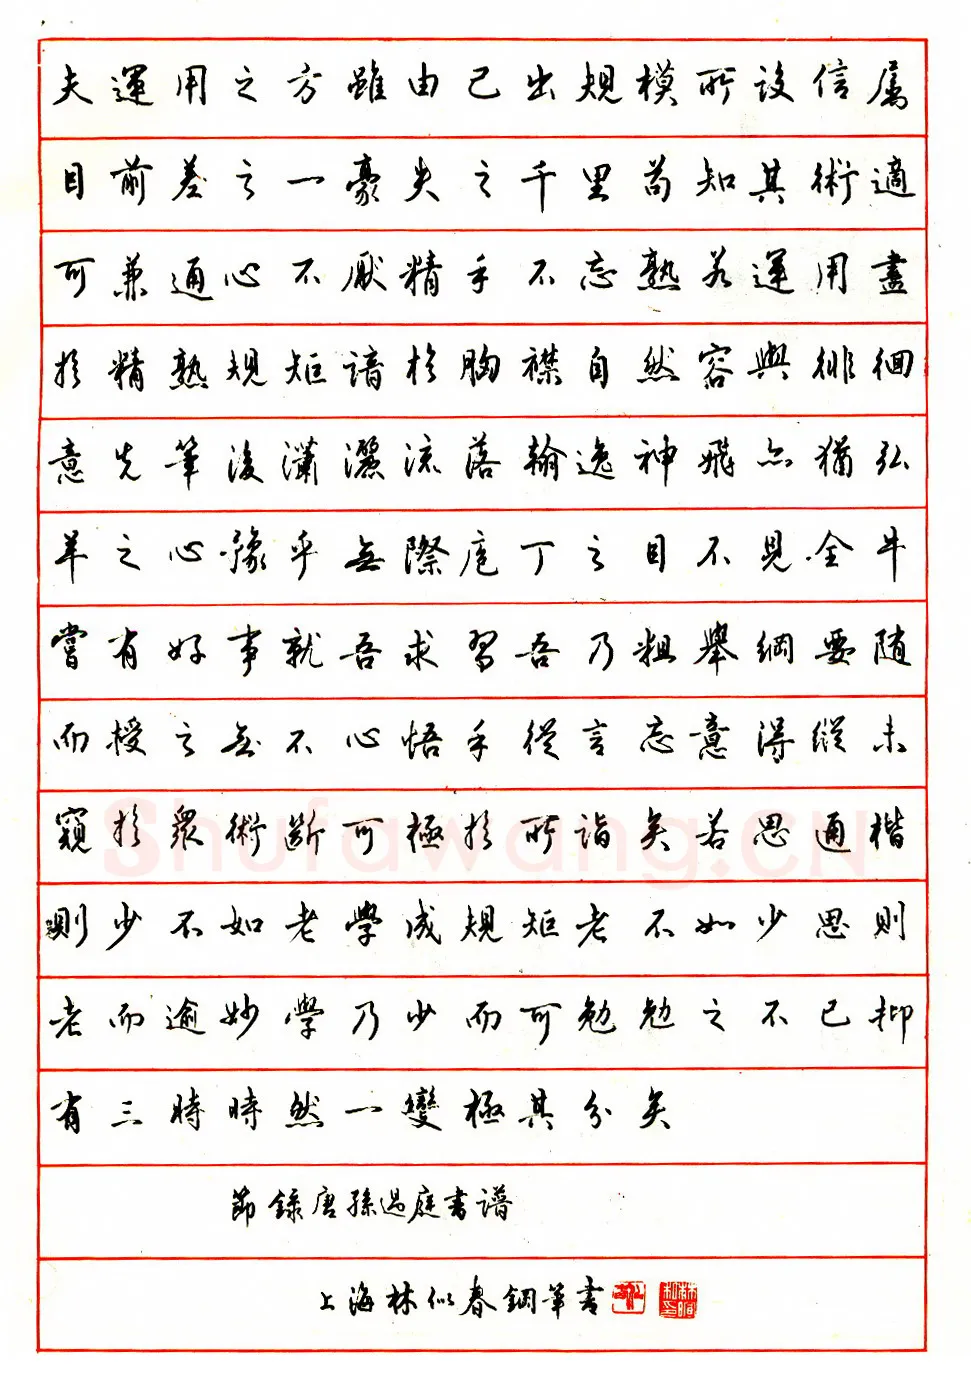 夫運用之方雖由己出規模所設信屬
目前差之一豪失之千里苟知其術適
可兼通心不厭精手不忘熟若運用盡
於精熟規矩諳於胸襟自然容與徘徊
意先筆後瀟灑流落翰逸神飛亦猶弘
羊之心豫乎無際庖丁之目不見全牛
嘗有好事就吾求習吾乃粗舉綱要随
而授之無不心悟手從言忘意得縱未
窺於衆術斷可極於所詣矣若思通楷
則少不如老學成規矩老不如少思則
老而逾妙學乃少而可勉勉之不已抑
有三時時然一變極其分矣
節録唐孫過庭書譜
上海林似春鋼筆書
Shufawang.CN